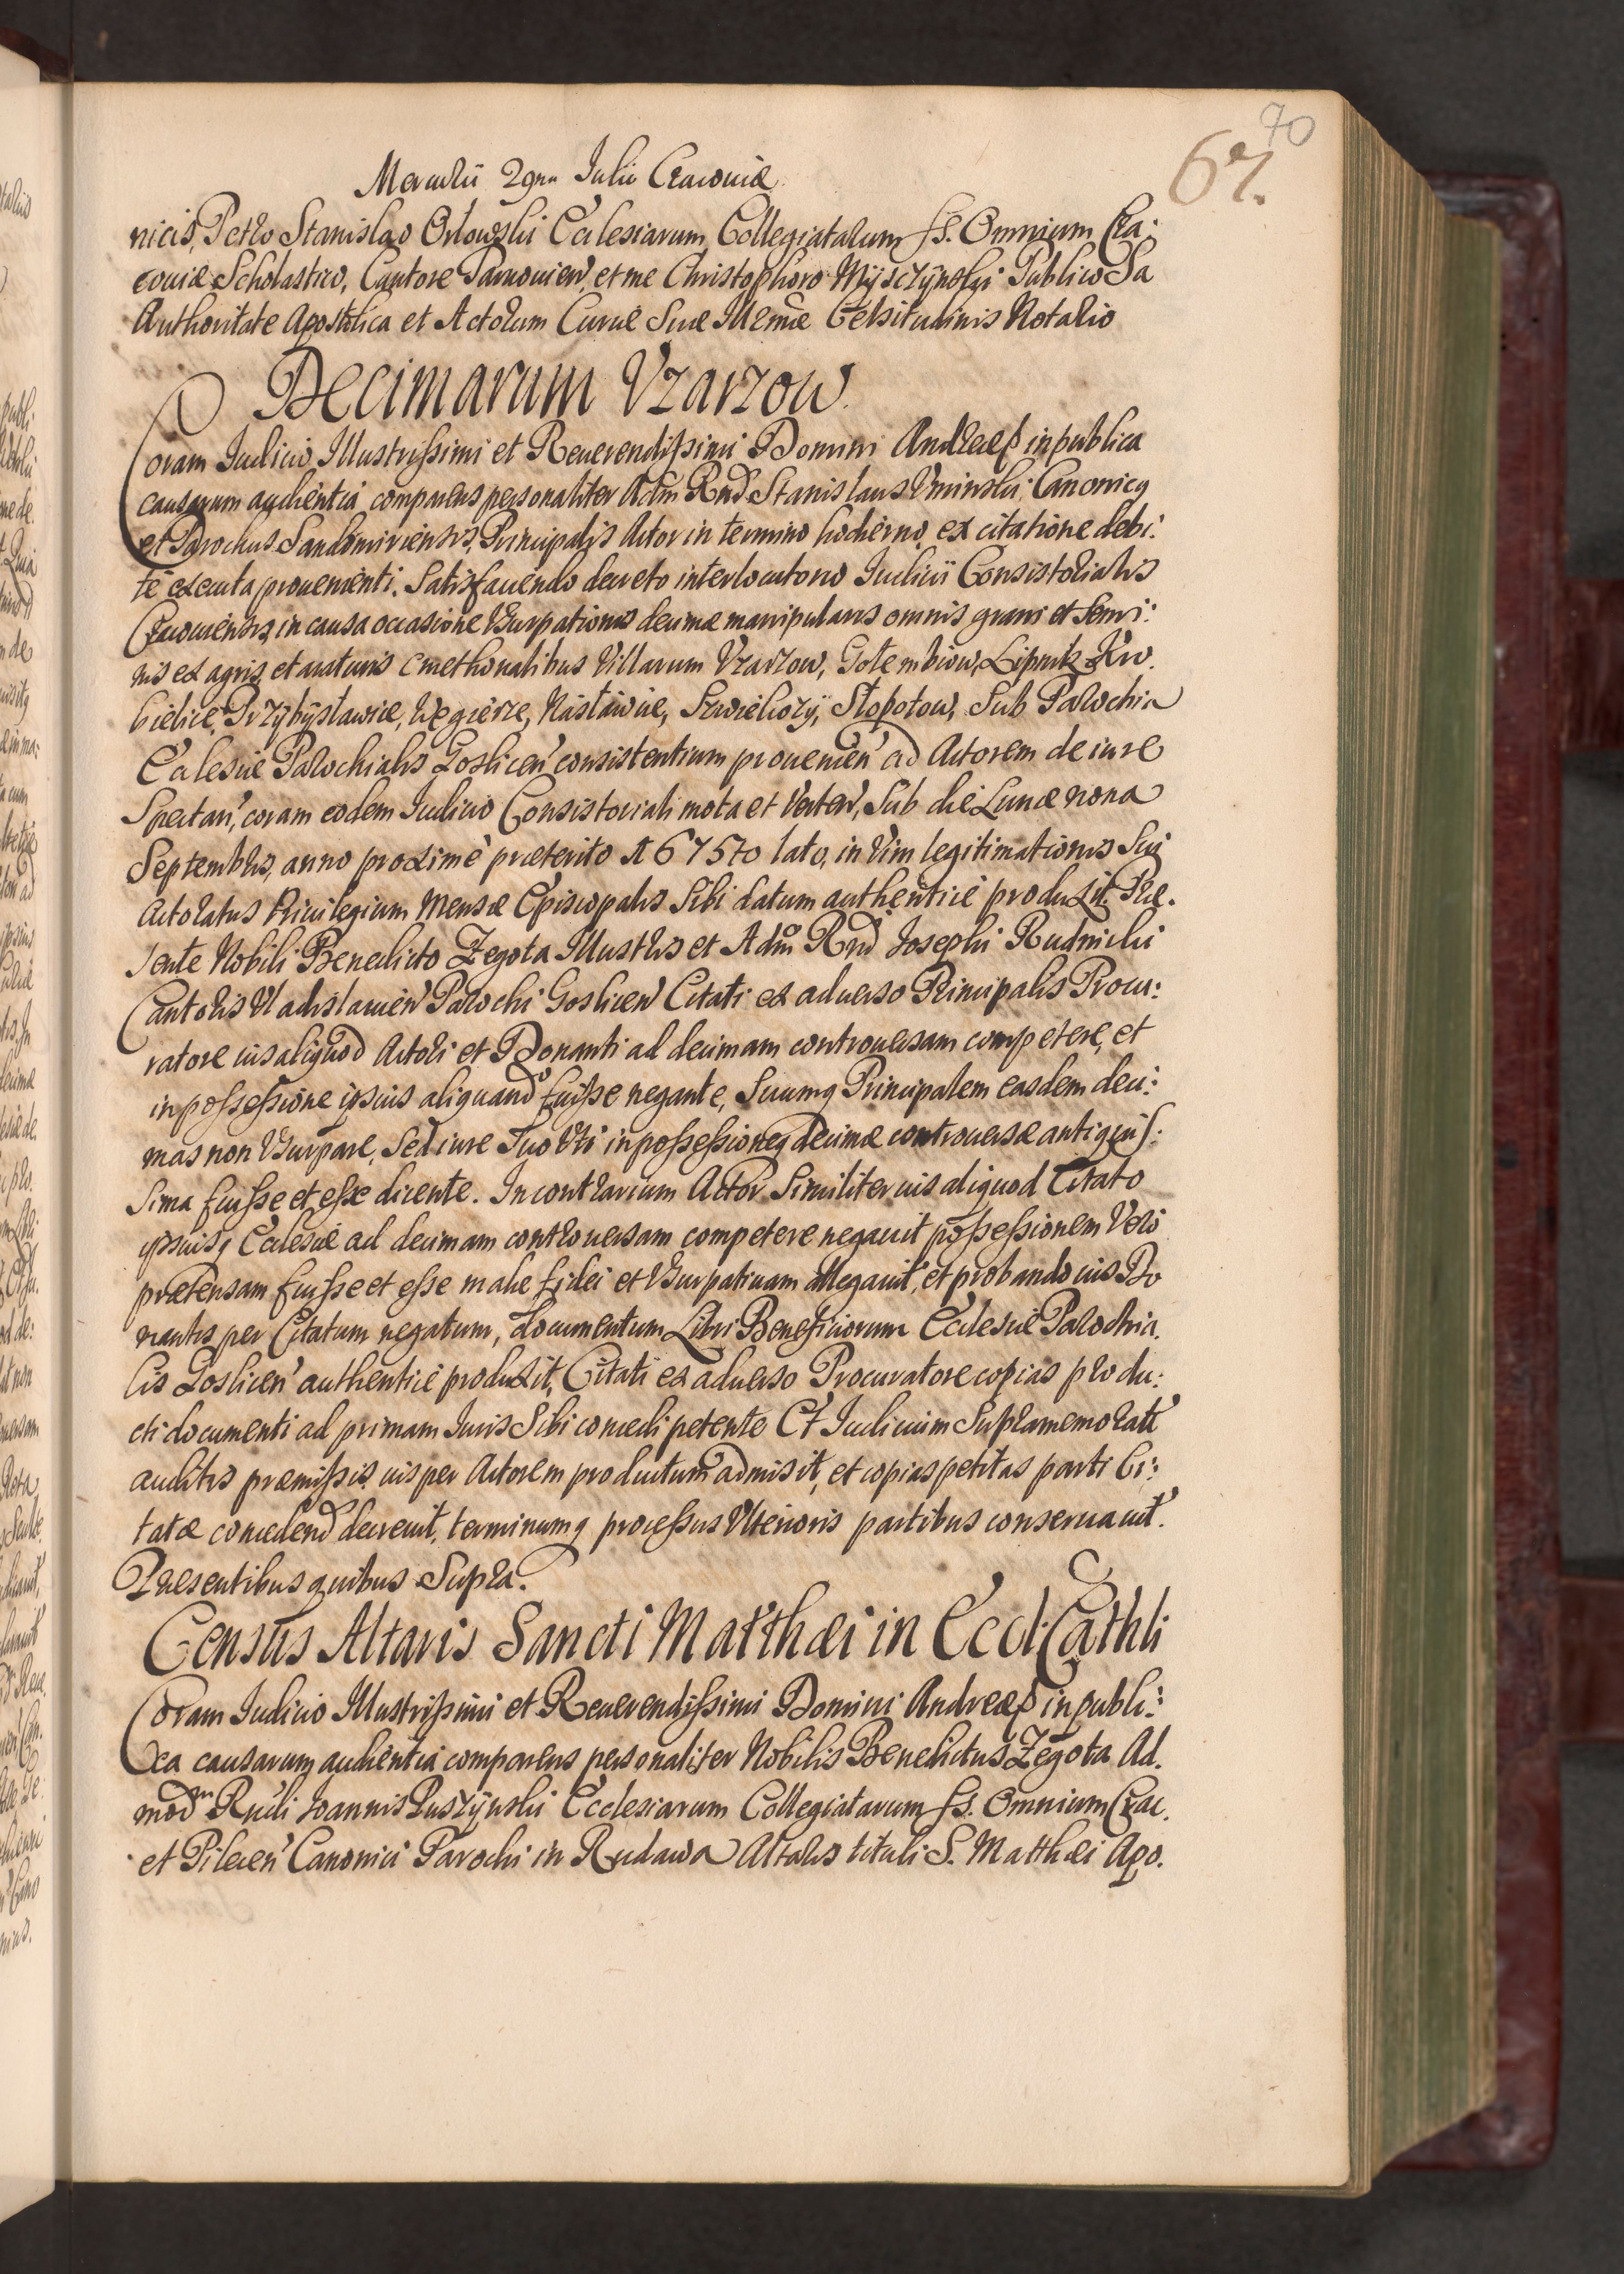 70
67.
Mercurii 29na Julii Cracoviæ
nicis, Petro Stanislao Orłowski Ecclesiarum Collegiatarum SS. Omnium Cra:
coviæ Scholastico, Cantore Tarnovien, et me Christophoro Mysczynski Publico Sa
Authoritate Apostolica et Actorum Curiæ Suæ Celsitudinis Notario
Decimarum Vzarzow
Coram Iudicio Illustrissimi et Reverendissimi Domini Andreæ in publica
causarum audientia comparens personaliter Adm Rnd Stanislaus Vminski, Canonicq
et Parochus Sandomiriensis, Principalis Actor in termino hodierno ex citatione debi:
te executa provenienti. Satisfaciendo decreto interlocutorio Iudicii Consistorialis
Cracoviensis, in causa occasione Vsurpationis decimæ manipularis omnis grani et semi:
nis ex agris et araturis cmethonalibus Villarum Vzarzow, Gołembiow, Lipnik Kro
bielice, Przybysławice, Węgierce, Nasławice, Szwieliczy, Słopotow, Sub Parochia
Ecclesiæ Parochialis Goslicen consistentium provenien ad Actorem de iure
Spectan, coram eodem Iudicio Consistoriali mota et Verten, Sub die Lunæ nona
Septembris, anno proxime præterito 1757o lato, in Vim legitimationis Sui
Actoratus Privilegium Mensæ Episcopalis Sibi datum authentice produxit. Præ.
sente Nobili Benedicto Zegota Illustris et Adm Rnd Josephi Rudnicki
Cantoris Vladislavien Parochi Goslicen Citati ex adverso Principalis Procu:
ratore ius aliquod Actori et Donanti ad decimam controversam competere, et
in possessione ipsius aliquando fuisse negante, Suumq Principalem easdem deci:
mas non Vsurpare, Sed iure Suo Vti in possessioneq decimæ controversæ antiquis:
sima fuisse et esse dicente. In contrarium Actor Similiter ius aliquod Citato
ipsiusq Ecclesiæ ad decimam controversam competere negavit possessionem Vero
prætensam fuisse et esse malæ fidei et Vsurpativam allegavit, et probando ius Do
nantis per Citatum negatum, documentum Libri Beneficiorum Ecclesiæ Parochia.
lis Goslicen authentice produxit, Citati ex adverso Procuratore copias produ:
cti documenti ad primam Iuris Sibi concedi petente Et Iudicium Supramemorati
auditis præmissis ius per Actorem productum admisit, et copias petitas parti Ci:
tatæ concedend decrevit, terminumq processus Vlterioris partibus conservavit.
Præsentibus quibus Supra.
Census Altaris Sancti Matthæi in Eccl: Cathli
Coram Iudicio Illustrissimi et Reverendissimi Domini Andreæ in publi:
ca causarum audientia comparens personaliter Nobilis Benedictus Zegota Ad.
modm Rndi Joannis Puszynski Ecclesiarum Collegiatarum SS. Omnium Crac.
et Pilecen Canonici Parochi in Rudawa Altaris tituli S. Matthæi Apo.